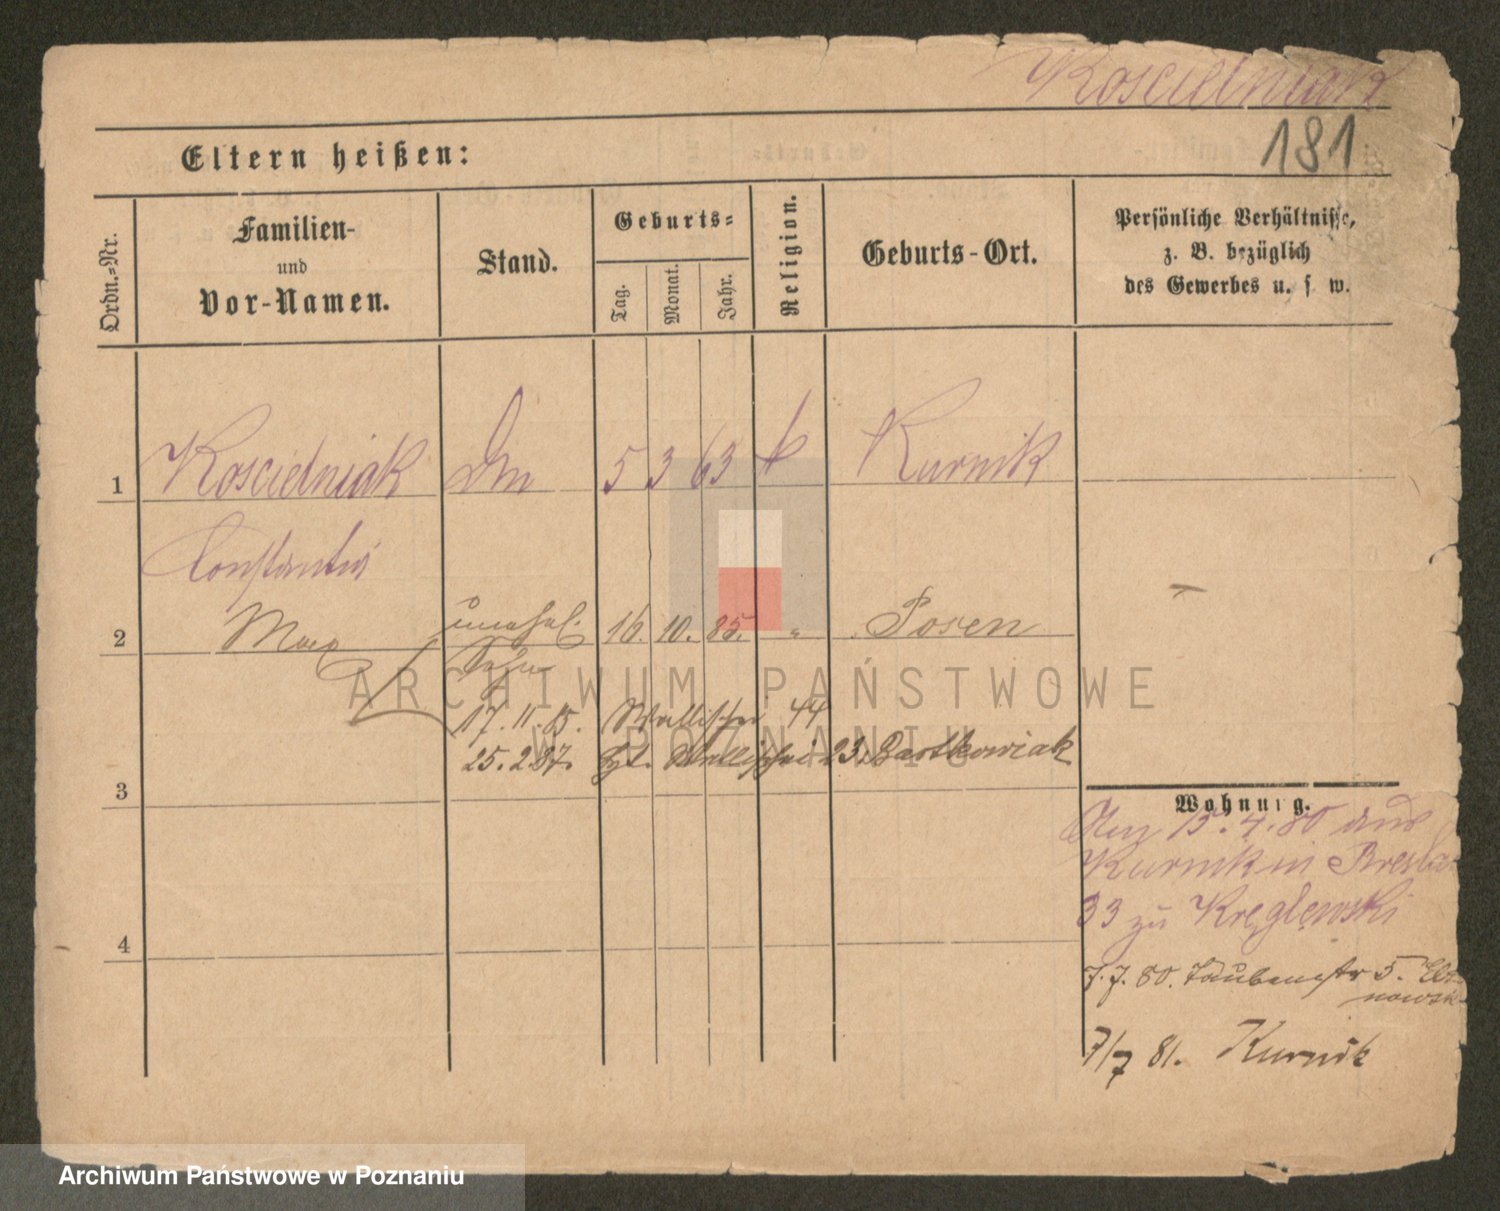 Koscielniak
181
Eltern heißen:
Ordn.-Nr.
Familien-
und
Vor-Namen.
Stand.
Geburts-
Tag.
Monat.
Jahr.
Religion.
Geburts-Ort.
Persönliche Verhältnisse,
z. B. bezüglich
des Gewerbes u. s. w.
1 Koscielniak Dm 5 3 63 k Kurnik
Constantia
2 Max unehel. 16. 10. 85. " Posen
Sohn
17. 11. 85. Wallischei 44
25. 2. 87. Wallischei 23. Bartkowiak
3
Wohnung.
15. 4. 80 aus
Kurnik in Bresla
33 zu Kręglewski
7. 7. 80. Taubenstr 5.
nowsk
4
7/7 81. Kurnik
ARCHIWUM PAŃSTWOWE
W POZNANIU
Archiwum Państwowe w Poznaniu